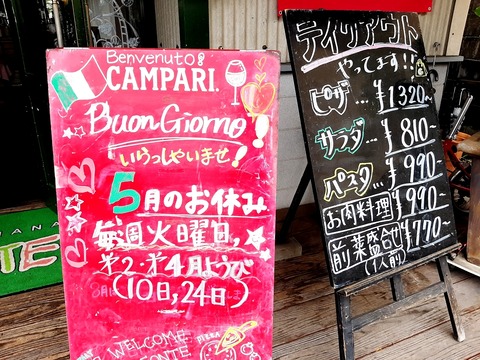 Benvenuto
CAMPARI.
Buon Giorno
いらっしゃいませ!
5月のお休み
毎週火曜日,
第2・第4月ようび
(10日,24日)
WELCOME
PIZZA
テイクアウト
やってます!!
ピザ...¥1320~
サラダ...¥810~
パスタ...¥990~
お肉料理¥990~
前菜盛合せ¥770~
(1人前)